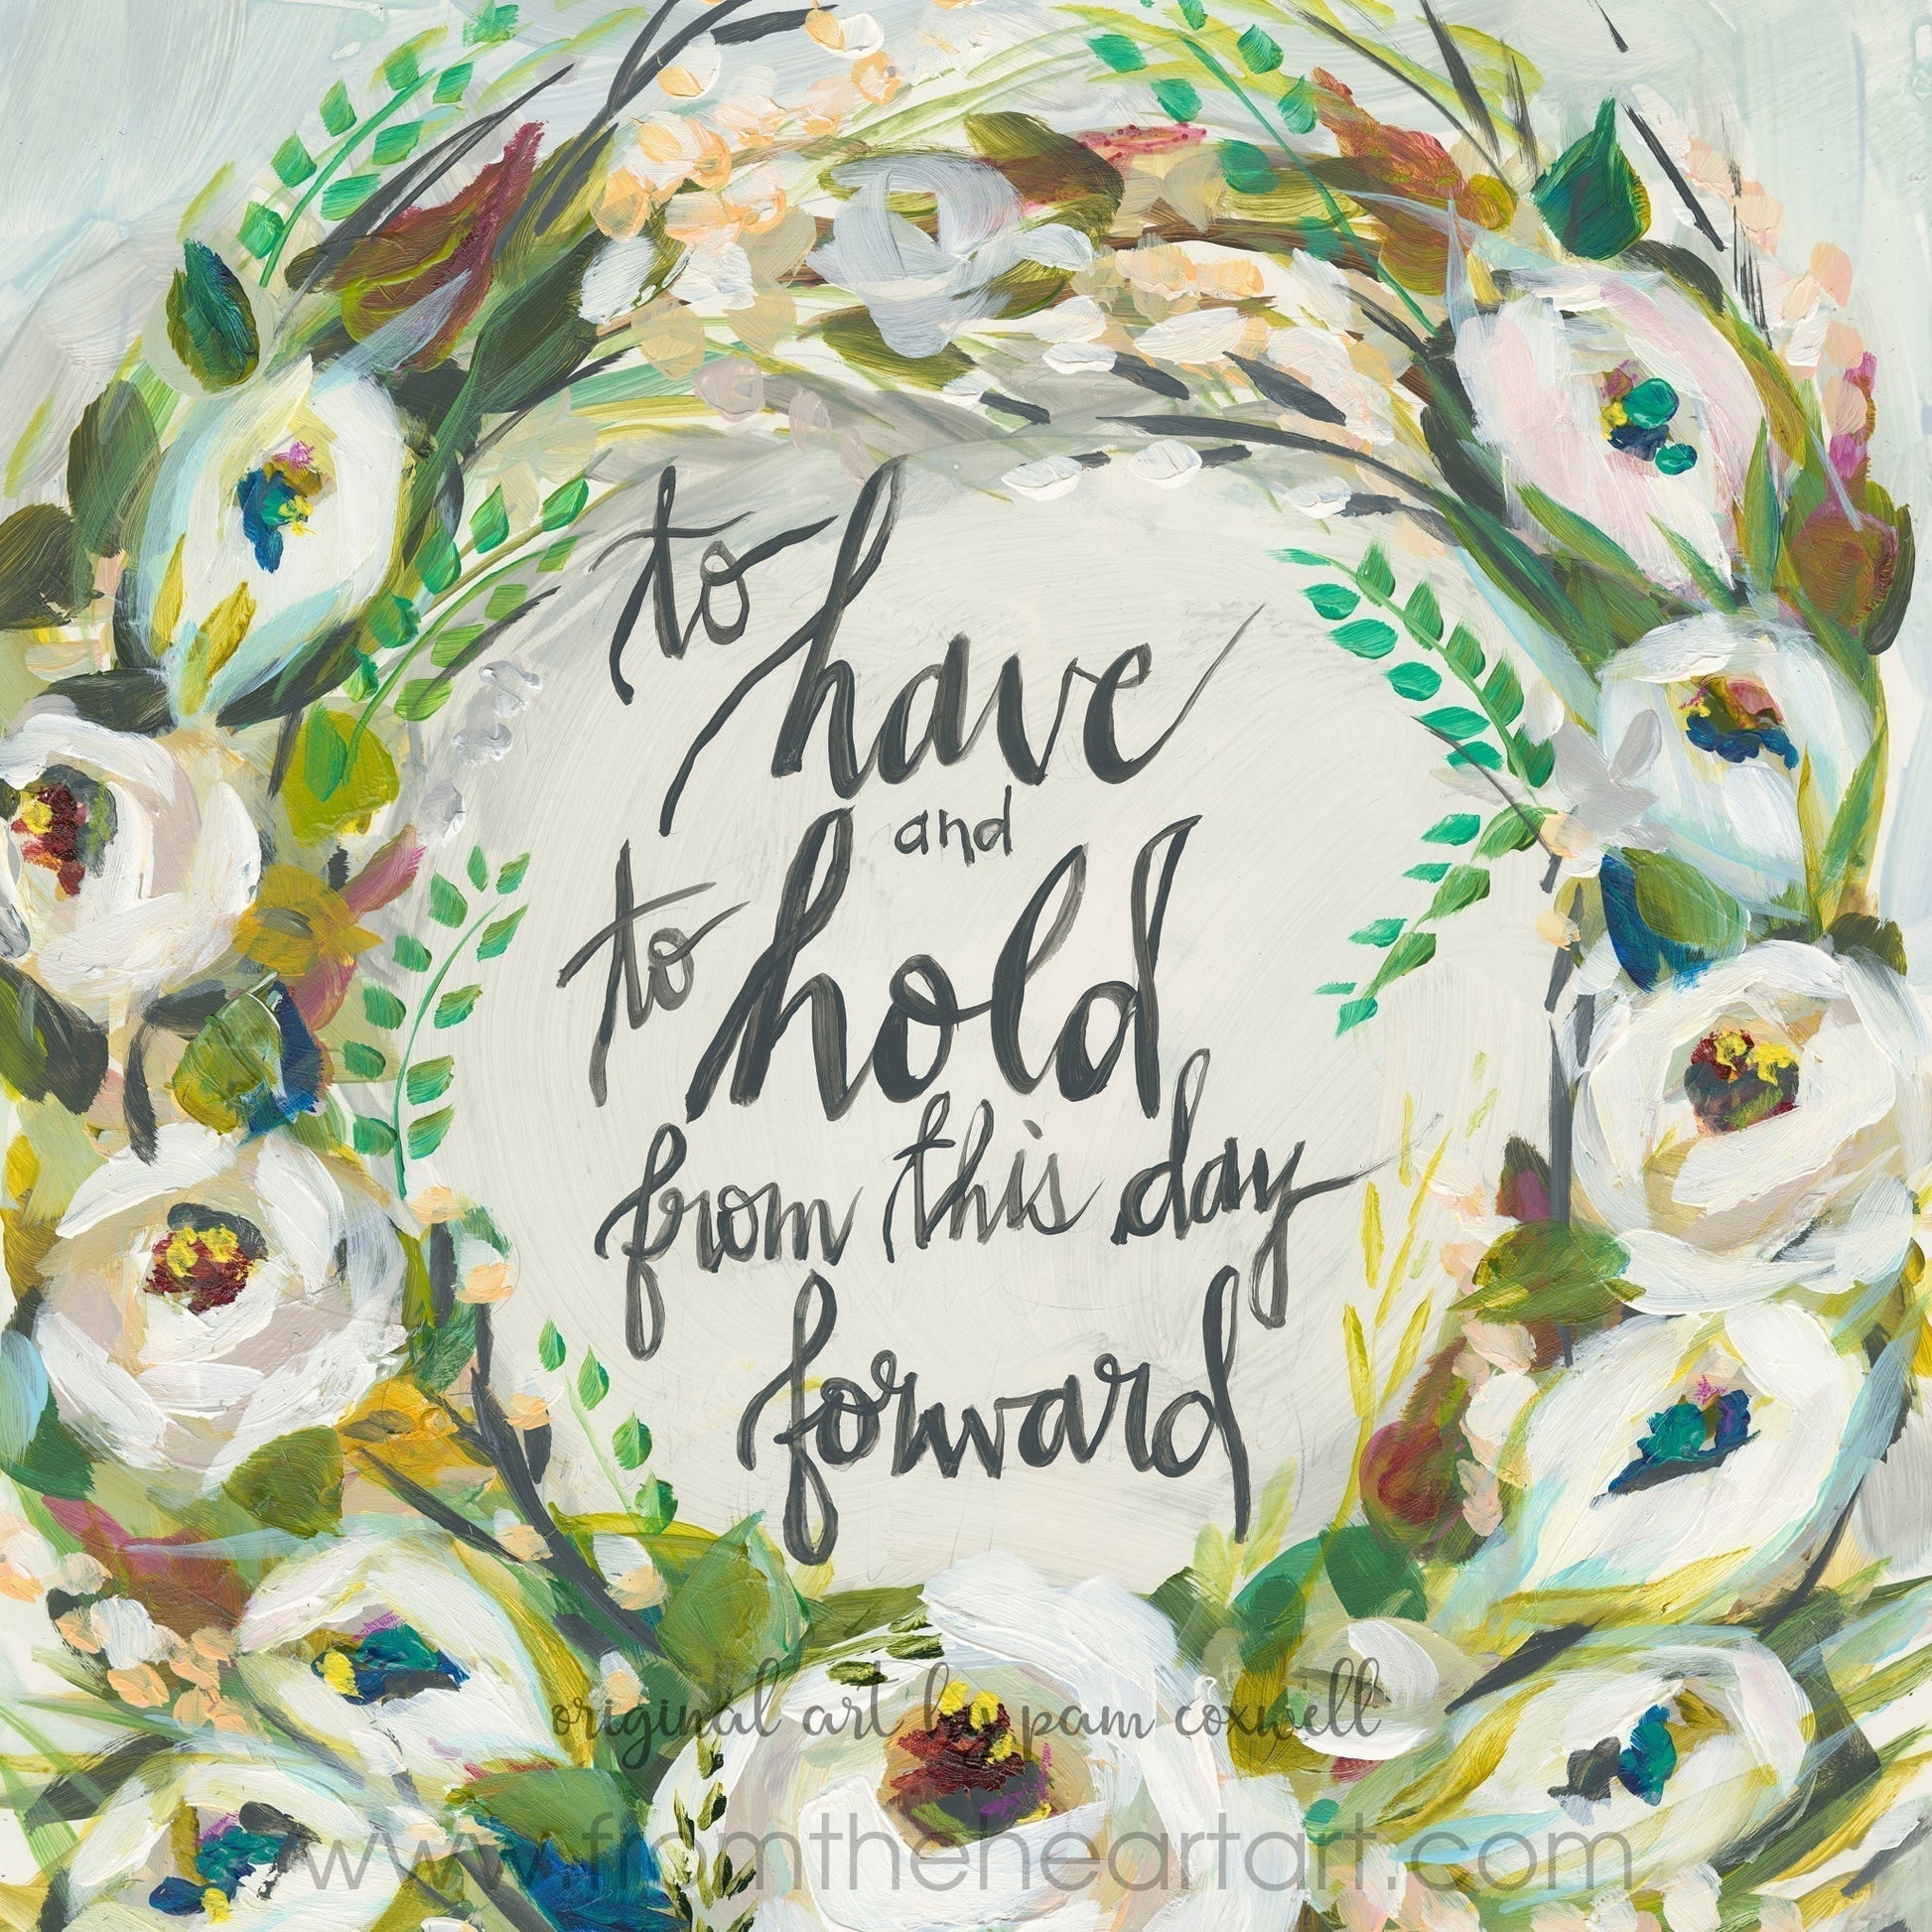 to have
and
to hold
from this day
forward
original art by pam coxwell
www.fromtheheartart.com